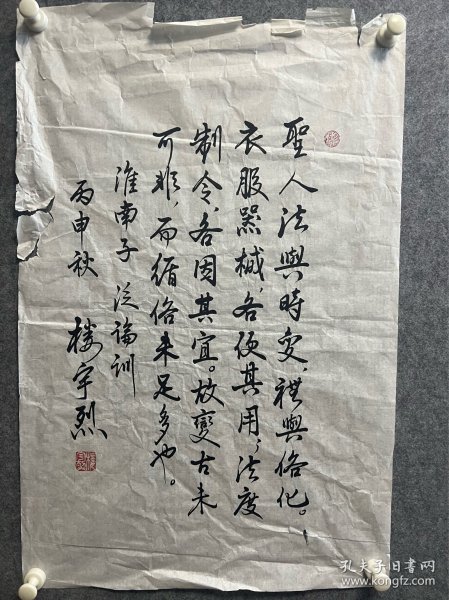 聖人法與時變，禮與俗化。
衣服器械，各便其用，法度
制令，各因其宜。故變古未
可非，而循俗未足多也。
淮南子 泛論訓
丙申秋 樓宇烈
孔夫子旧书网
www.kongfz.com